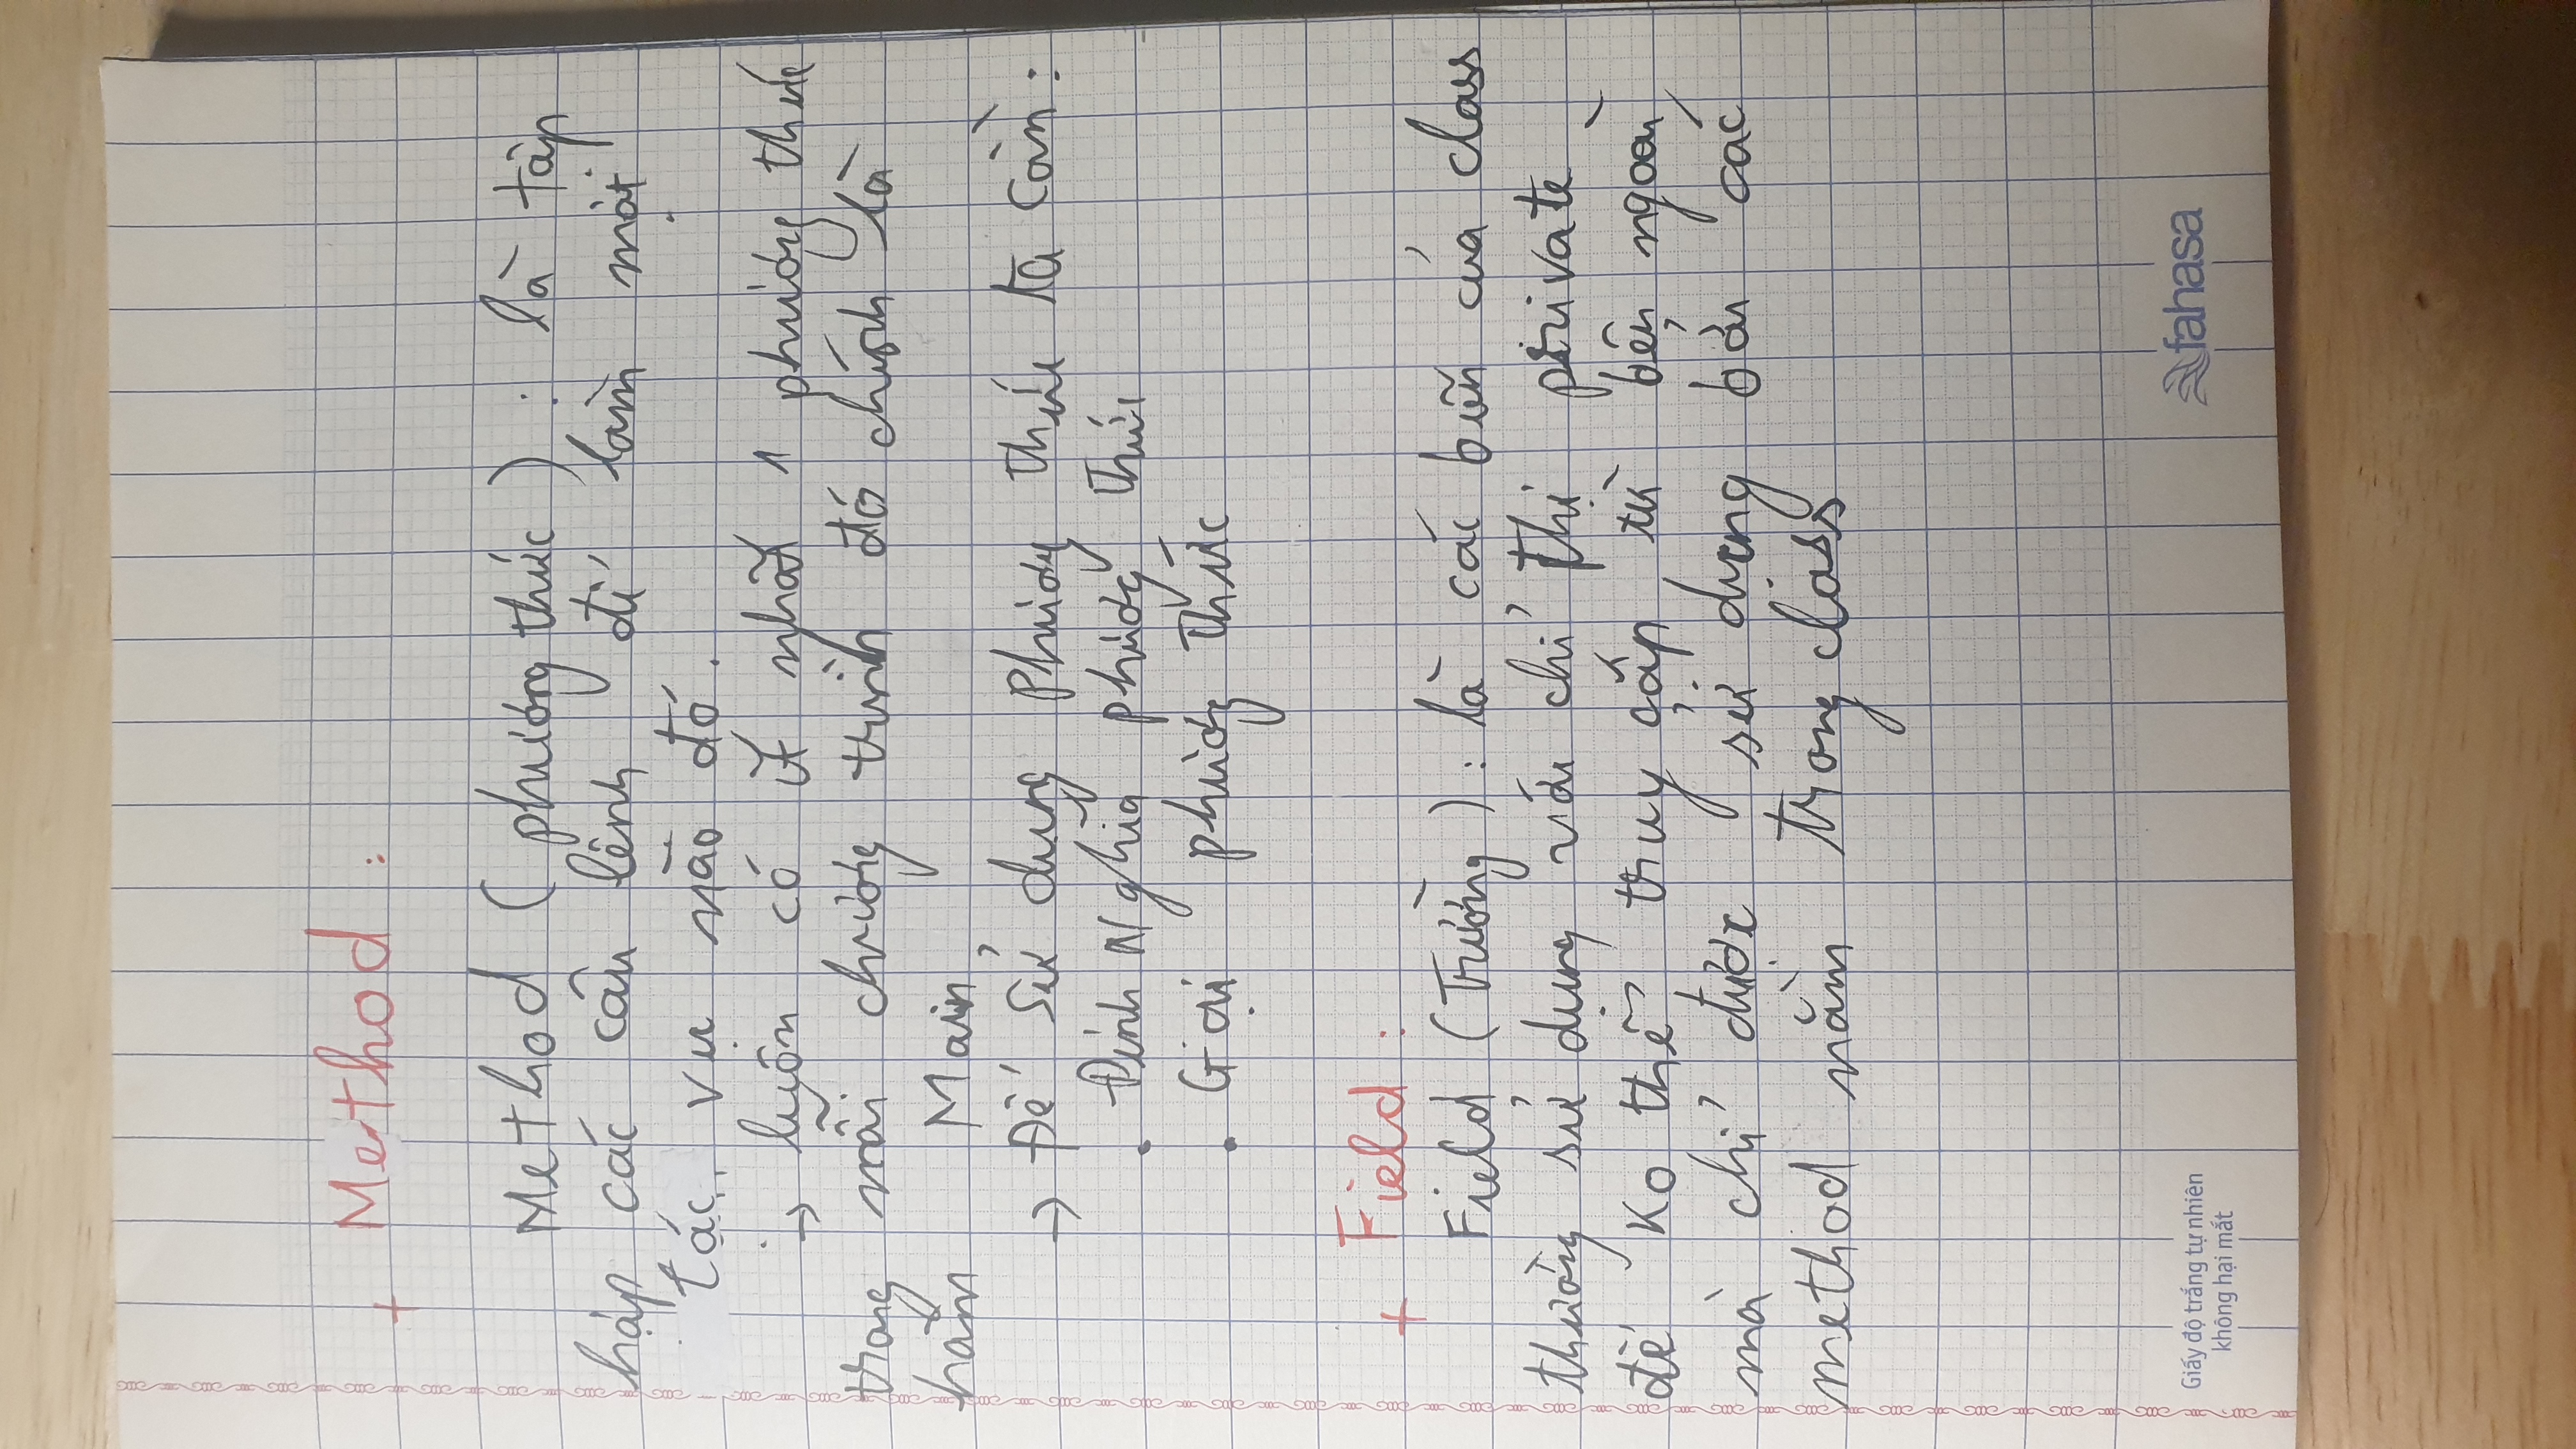 + Method :
Method ( phương thức ) : là tập
hợp các câu lệnh để làm một
tác vụ nào đó.
→ luôn có ít nhất 1 phương thức
trong mỗi chương trình đó chính là
hàm Main
→ Để sử dụng phương thức ta cần :
. Định Nghĩa phương thức
. Gọi phương thức
+ Field :
Field (Trường) : là các biến của class
thường sử dụng với chỉ thị private
để ko thể truy cập từ bên ngoài
mà chỉ được sử dụng bởi các
method nằm trong class
Giấy độ trắng tự nhiên
không hại mắt
fahasa